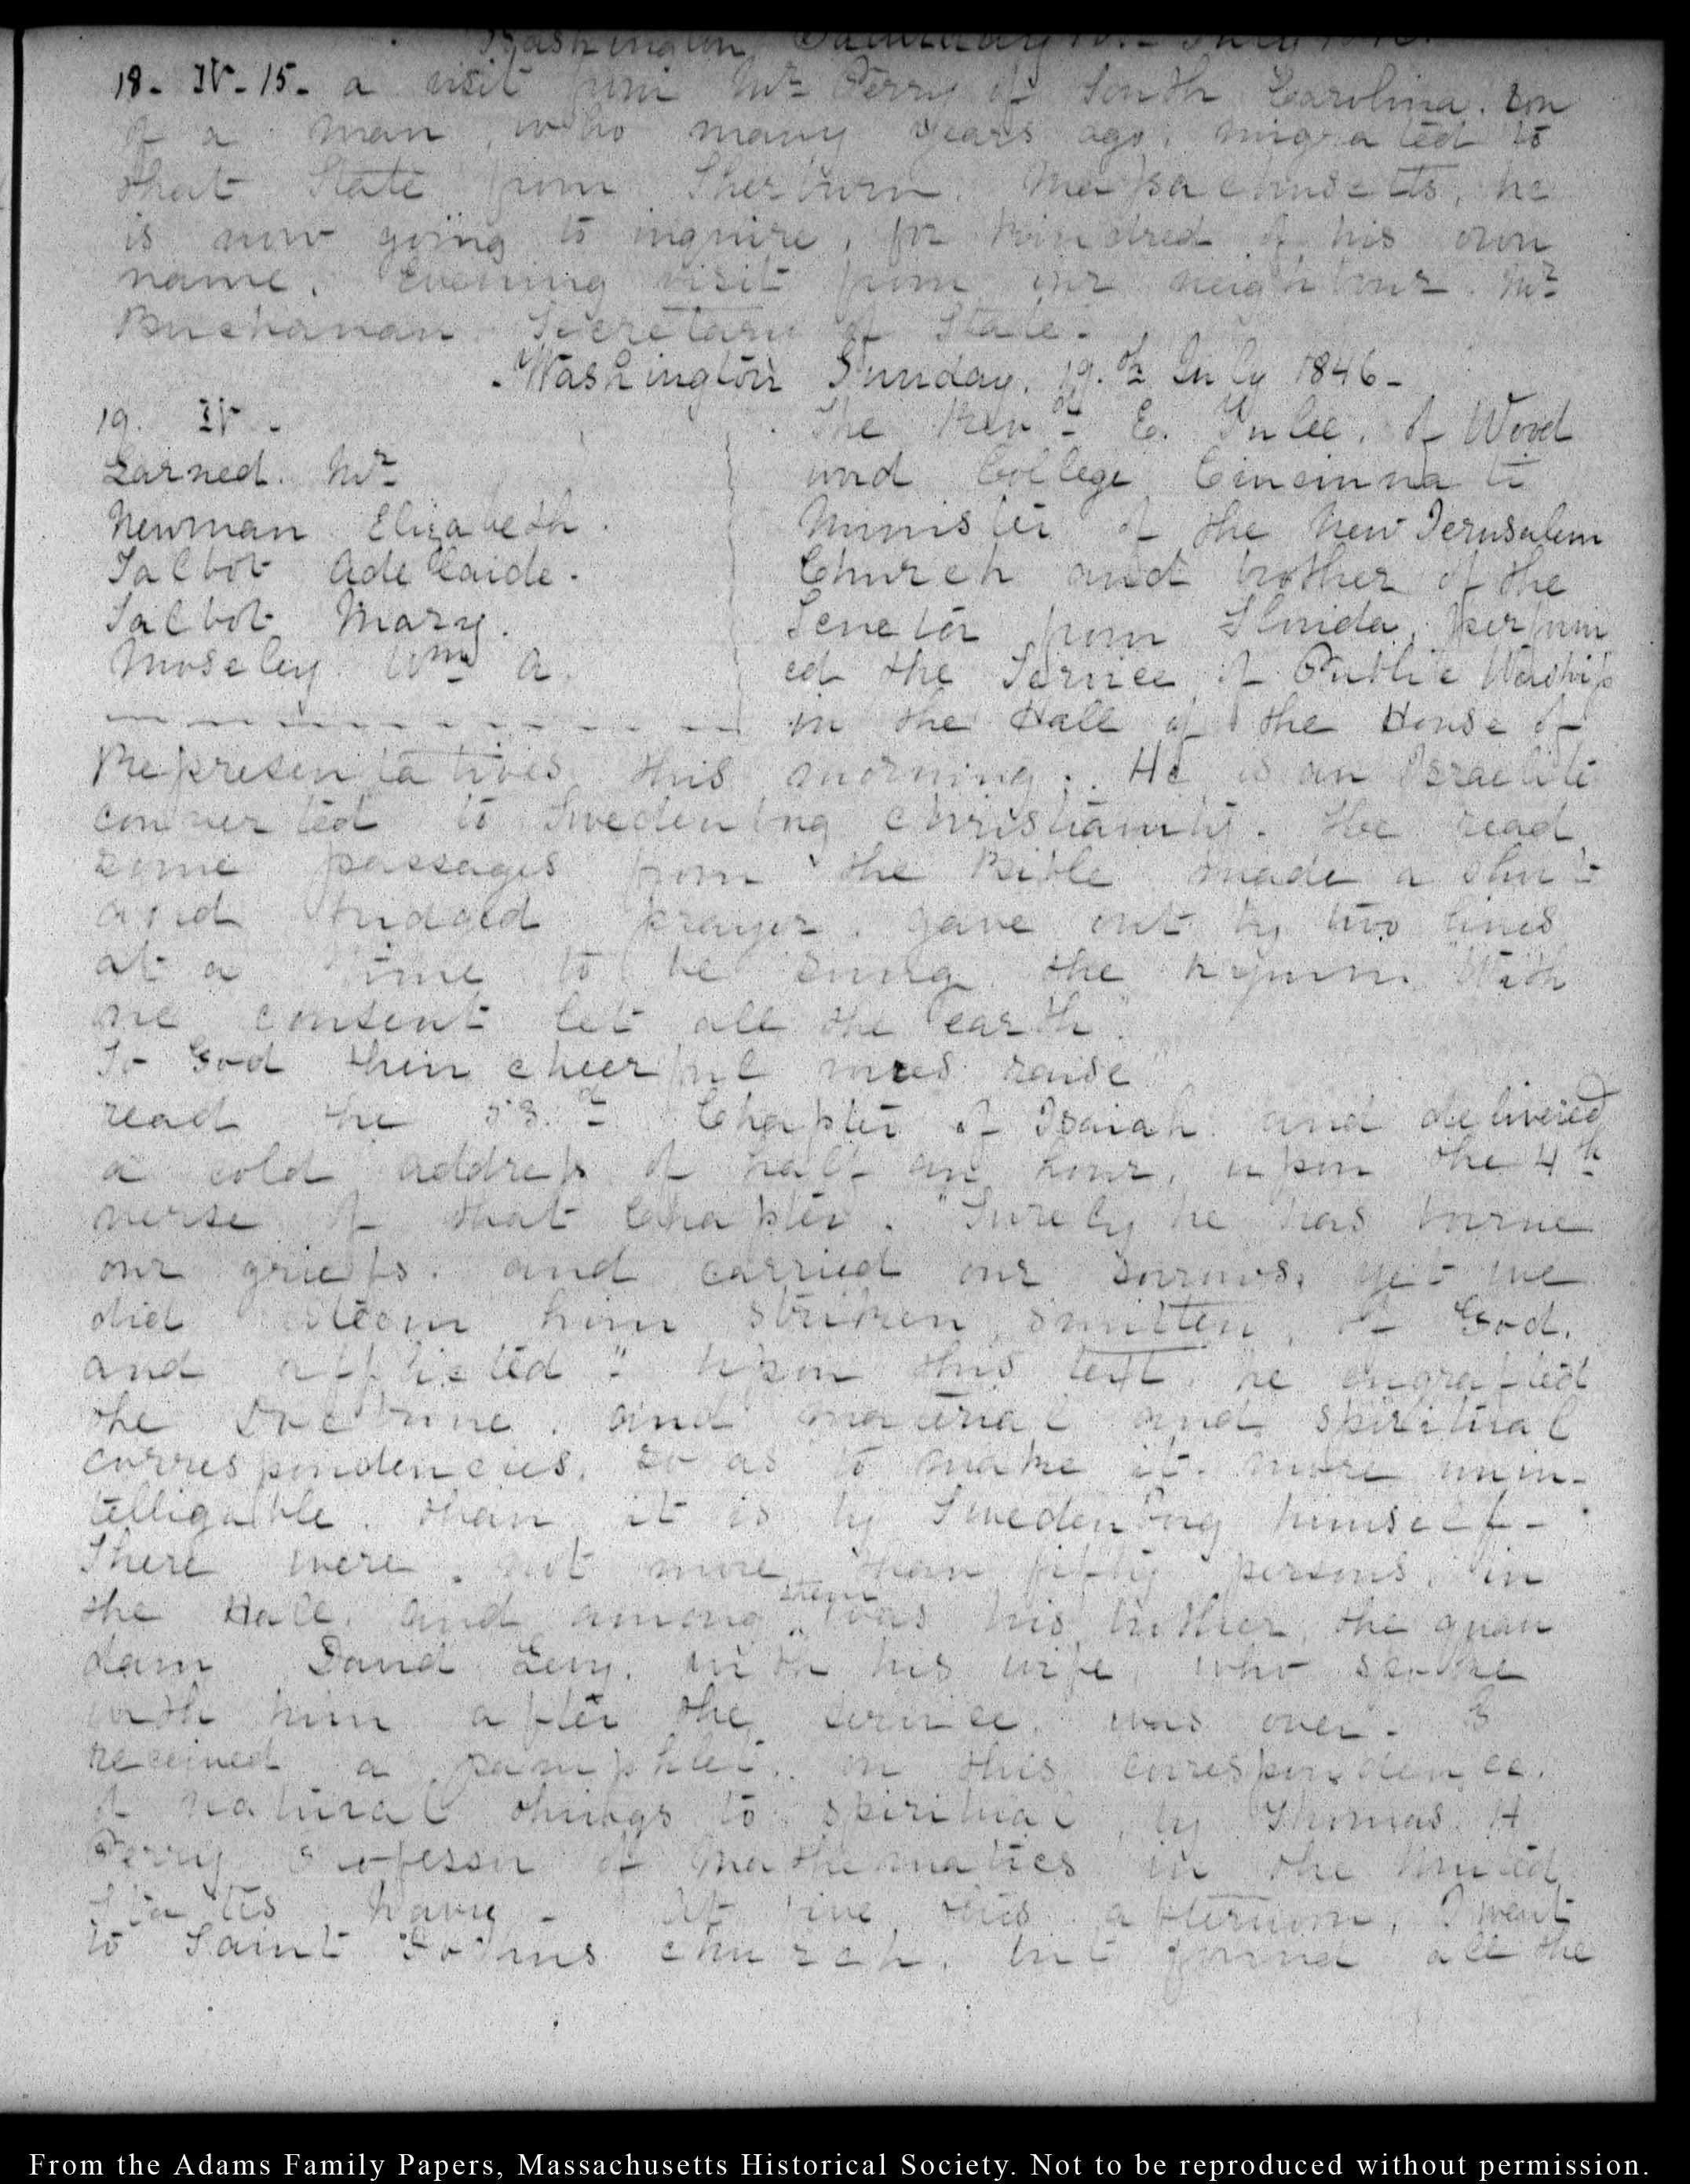 Washington, Saturday 18. - July 1846.
18 - IV - 15 - a visit from Mr Perry of South Carolina. Son
of a man, who many years ago, migrated to
that State from Sherburn. Massachusetts, he
is now going to inquire, for kindred of his own
name. Evening visit from our neighbour Mr
Buchanan. Secretary of State -
- Washington Sunday. 19.th July 1846 -
19. IV -
Larned. Mr
Newman Elizabeth.
Talbot Adelaide.
Talbot Mary.
Moseley Wm A.
The Revd E. Yulee, of Wood
ward College Cincinnati
Minister of the New Jerusalem
Church and brother of the
Senator from Florida, perform
ed the Service of Public Worship
in the Hall of the House of
Representatives this morning. He is an Israelite
converted to Swedenborg Christianity. He read
some passages from the Bible made a short
and prayer. gave out by two lines
at a time to be sung the hymn. "With
one consent let all the earth
To God their cheerful voices raise"
read the 53.d Chapter of Isaiah. and delivered
a cold address of half an hour, upon the 4th
verse of that Chapter. "Surely he has borne
our griefs. and carried our sorrows, yet we
did esteem him stricken, smitten, of God.
and afflicted" - Upon this text, he engrafted
the Doctrine. and material and spiritual
correspondencies, so as to make it more unin-
telligable. than it is by Swedenborg himself -
There were not more than fifty persons, in
the Hall. and among them was his brother, the quon
dam David Levy. with his wife who spoke
with him after the service, was over - I
received a pamphlet. on this correspondence.
of natural things to spiritual by Thomas H
Perry Professor of Mathematics in the United
States Navy - At five this afternoon, I went
to Saint Johns church. but found all the
From the Adams Family Papers, Massachusetts Historical Society. Not to be reproduced without permission.